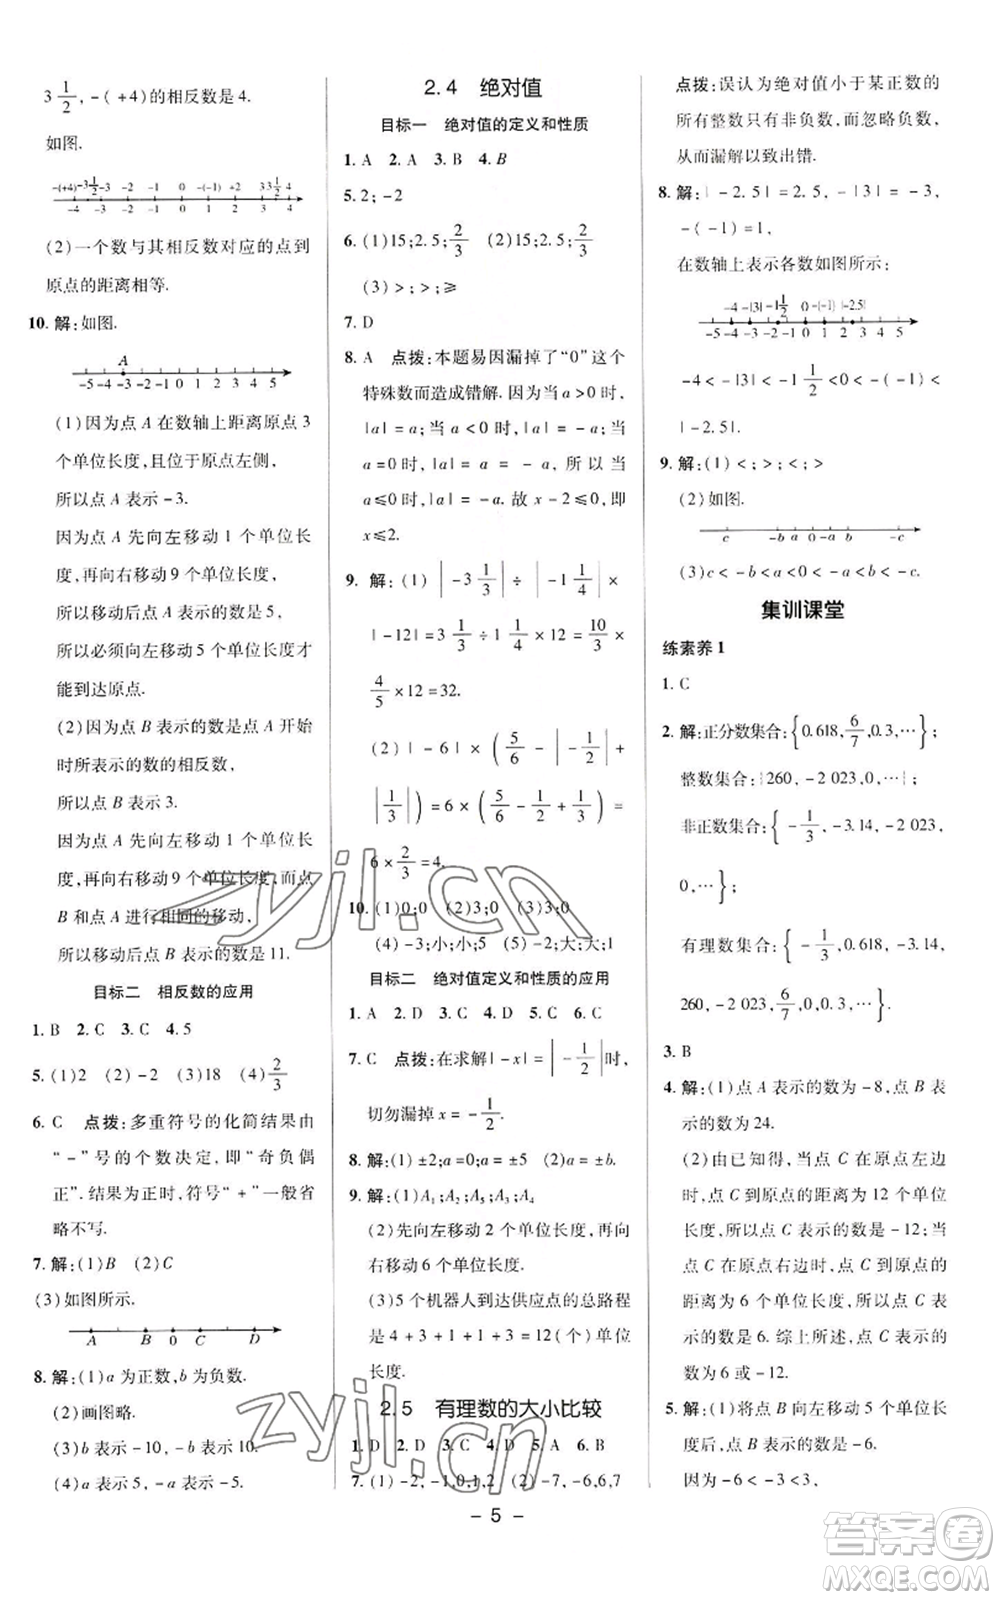 3 1/2, -(+4)的相反数是4.
如图.
-(+4) -3 1/2 -3 -2 -1 0 -(-1) +2 3 3 1/2 4
-4 -3 -2 -1 0 1 2 3 4
(2)一个数与其相反数对应的点到
原点的距离相等.
10. 解:如图.
A
-5 -4 -3 -2 -1 0 1 2 3 4 5
(1)因为点 A 在数轴上距离原点 3
个单位长度,且位于原点左侧,
所以点 A 表示 -3.
因为点 A 先向左移动 1 个单位长
度,再向右移动 9 个单位长度,
所以移动后点 A 表示的数是 5,
所以必须向左移动 5 个单位长度才
能到达原点.
(2)因为点 B 表示的数是点 A 开始
时所表示的数的相反数,
所以点 B 表示 3.
因为点 A 先向左移动 1 个单位长
度,再向右移动 9 个单位长度,而点
B 和点 A 进行相同的移动,
所以移动后点 B 表示的数是 11.
目标二 相反数的应用
1. B 2. C 3. C 4. 5
5. (1)2 (2)-2 (3)18 (4) 2/3
6. C 点拨:多重符号的化简结果由
“-”号的个数决定,即“奇负偶
正”.结果为正时,符号“+”一般省
略不写.
7. 解:(1)B (2)C
(3)如图所示.
A B 0 C D
8. 解:(1)a 为正数,b 为负数.
(2)画图略.
(3)b 表示 -10, -b 表示 10.
(4)a 表示 5, -a 表示 -5.
2.4 绝对值
目标一 绝对值的定义和性质
1. A 2. A 3. B 4. B
5. 2; -2
6. (1)15;2.5; 2/3 (2)15;2.5; 2/3
(3)>;>;≥
7. D
8. A 点拨:本题易因漏掉了“0”这个
特殊数而造成错解.因为当 a>0 时,
|a|=a;当 a<0 时, |a|=-a;当
a=0 时, |a|=a=-a,所以当
a≤0 时, |a|=-a.故 x-2≤0,即
x≤2.
9. 解:(1) |-3 1/3| ÷ |-1 1/4| ×
|-12|=3 1/3 ÷1 1/4 ×12= 10/3 ×
4/5 ×12=32.
(2) |-6|×( 5/6 - |-1/2| +
|1/3| )=6×( 5/6 - 1/2 + 1/3 )=
6× 2/3 =4.
10. (1)0;0 (2)3;0 (3)3;0
(4)-3;小;小;5 (5)-2;大;大;1
目标二 绝对值定义和性质的应用
1. A 2. D 3. D 4. C 5. C 6. C
7. C 点拨:在求解|-x|= |-1/2| 时,
切勿漏掉 -1/2.
8. 解:(1)±2;a=0;a=±5 (2)不存在.
9. 解:(1)A₁;A₃;A₂;A₄
(2)先向左移动 2 个单位长度,再向
右移动 6 个单位长度.
(3)5 个机器人到达供应点的总路程
是 4+3+1+1+3=12(个)单位
长度.
2.5 有理数的大小比较
1. D 2. D 3. C 4. D 5. A 6. B
7. (1)-2,-1,0,1,2 (2)-7,-6,6,7
点拨:误认为绝对值小于某正数的
所有整数只有非负数,而忽略负数,
从而漏解以致出错.
8. 解:|-2.5|=2.5, -|3|=-3,
-(-1)=1,
在数轴上表示各数如图所示:
-4 -|3| -1 1/2 0 -(-1) |-2.5|
-5 -4 -3 -2 -1 0 1 2 3 4 5
-4<-|3|<-1 1/2 <0<-(-1)<
|-2.5|.
9. 解:(1)<;>;<;>
(2)如图.
c -b a 0 -a b -c
(3)c<-b<a<0<-a<b<-c.
集训课堂
练素养 1
1. C
2. 解:正分数集合:{0.618, 6/7, 0.3,…};
整数集合:{260, -2 023,0,…};
非正数集合:{ -1/3, -3.14, -2 023,
0,…};
有理数集合:{ -1/3, 0.618, -3.14,
260, -2 023, 6/7, 0,0.3,…}.
3. B
4. 解:(1)点 A 表示的数为 -8,点 B 表
示的数为 24.
(2)由已知得,当点 C 在原点左边
时,点 C 到原点的距离为 12 个单位
长度,所以点 C 表示的数是 -12;当
点 C 在原点右边时,点 C 到原点的
距离为 6 个单位长度,所以点 C 表
示的数是 6.综上所述,点 C 表示的
数为 6 或 -12.
5. 解:(1)将点 B 向左移动 5 个单位长
度后,点 B 表示的数是 -6.
因为 -6<-3<3,
- 5 -
zyjl.cn
zyjl.cn
答案圈
MXQE.COM